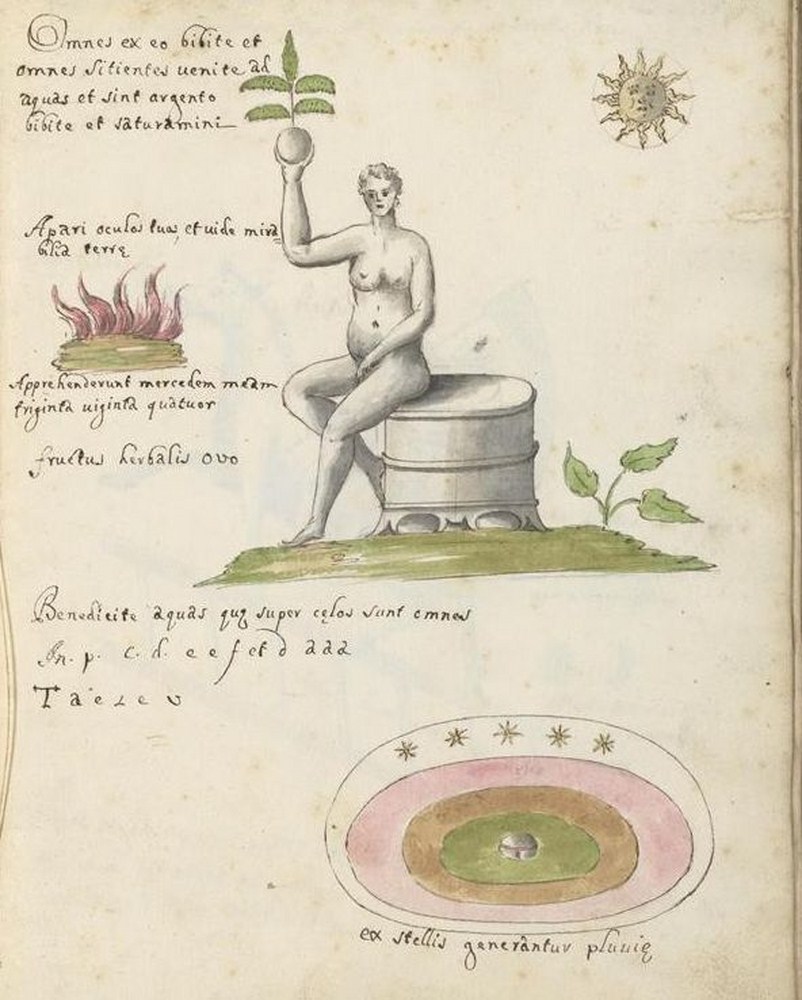 Omnes ex eo bibite et
omnes sitientes uenite ad
aquas et sint argento
bibite et saturamini
Apari oculos tuos, et uide mira
bilia terrę
Apprehenderunt mercedem meam
triginta uiginta quatuor
fructus herbalis ovo
Benedicite aquas quę super cęlos sunt omnes
p. c. d. e e f et d a a a
T a e z e v
ex stellis generantur pluuię